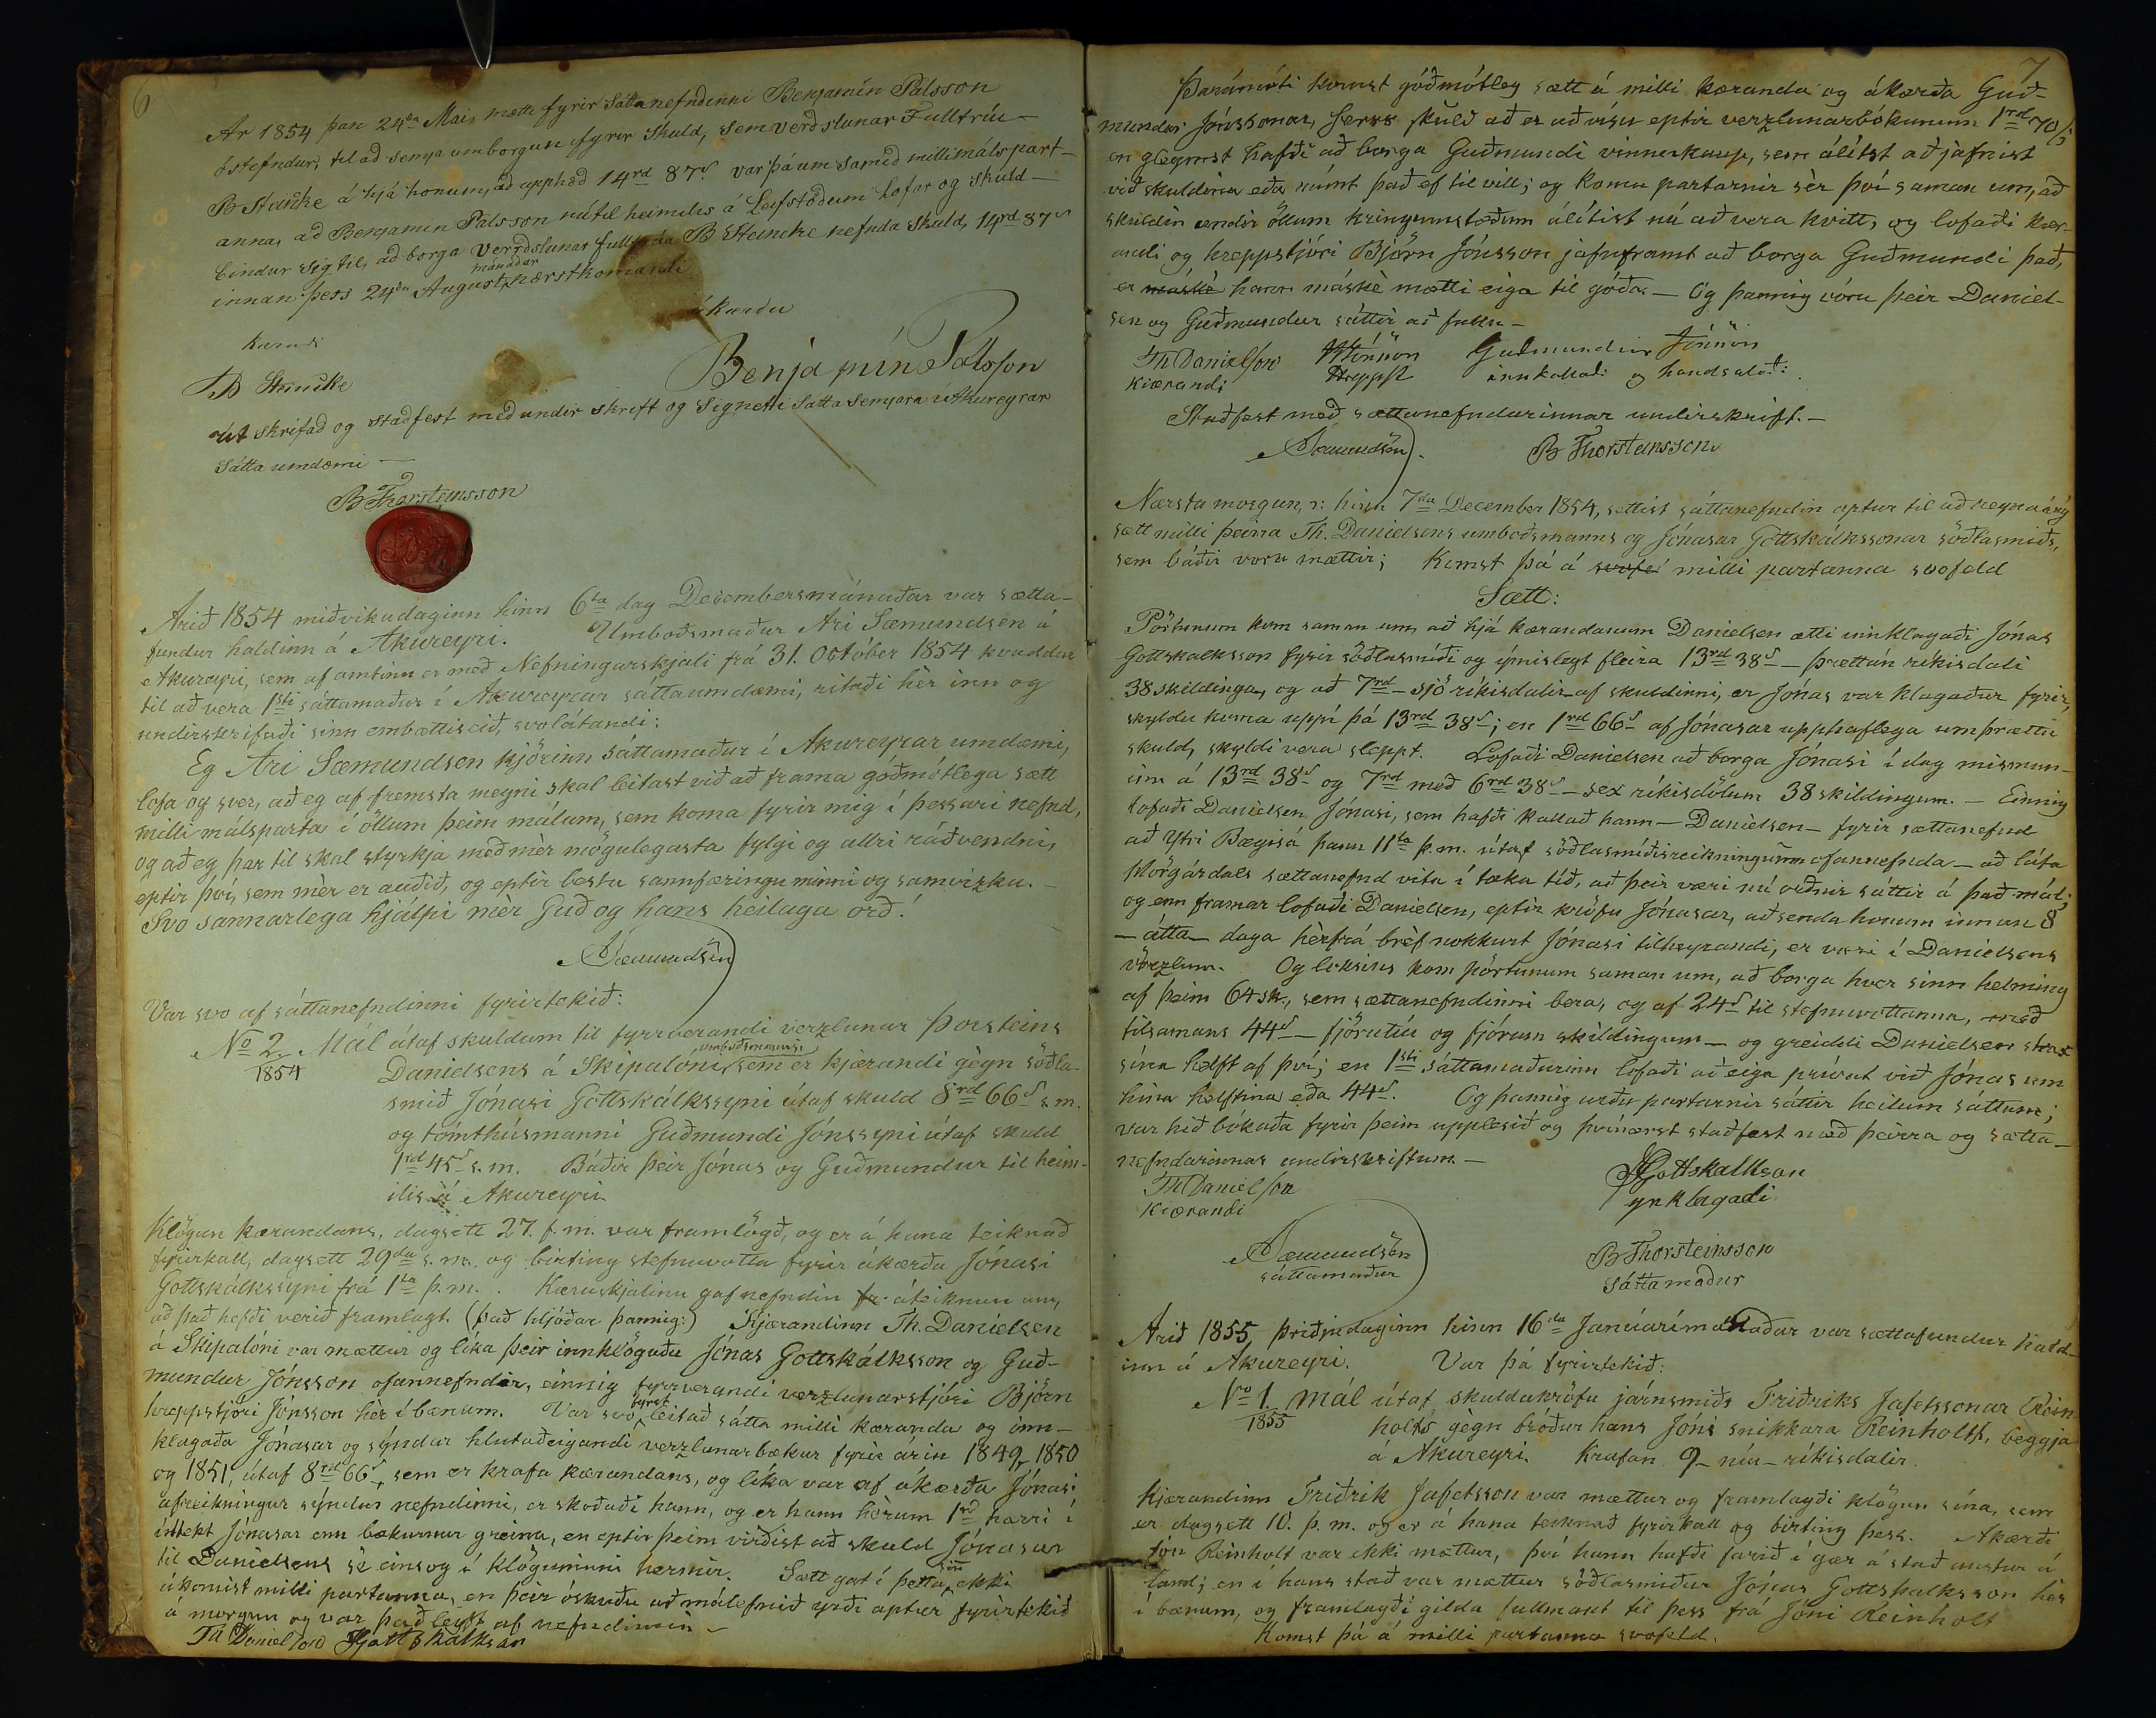 6
Ar 1854 þan 24da Mai, mætti fyrir Sáttanefndinni Benjamín Pálsson
óstefndur, til að semja umborgun fyrir Skuld, sem verdslunar Fulltrúi
B Steincke á hjá honum, að upphæd 14rd 87s var þá um samid millimálspart-
anna, að Benjamin Pálsson nú til heimilis á Leifstödum Lofar og skuld-
bindur sig til, að borga verdslunar fulltrúa B Steincke nefnda Skuld, 14rd 87s
innan þess 24da August mánadar nærstkomandi
ákærdu
Kærandi
B Steincke
Benjamín Pálsson
út skrifað og staðfest med undir skrift og Signetti Satta Semjara í Akureyrar
Sátta umdæmi —
B Thorsteinsson
Arið 1854 miðvikudaginn hinn 6ta dag Decembermánaðar var sætta-
fundur haldinn á Akureyri. Umboðsmaður Ari Sæmundsen á
Akureyri, sem af amtinu er með Nefningarskjali frá 31. October 1854 kvaddur
til að vera 1sti sáttamaður í Akureyrar sáttaumdæmi, ritaði hèr inn og
undirskrifaði sinn embættiseið, svolátandi:
Eg Ari Sæmundsen kjörinn sáttamaður í Akureyrar umdæmi,
lofa og sver, að eg af fremsta megni skal leitast við að frama góðmótlega sætt
milli málsparta í öllum þeim málum, sem koma fyrir mig í þessari nefnd,
og að eg þar til skal styrkja með mèr mögulegasta fylgi og allri ráðvendni,
eptir því, sem mèr er auðið, og eptir bestu sannfæringu minni og samvizku. —
Svo sannarlega hjálpi mèr Guð og hans heilaga orð!
ASæmundsen
Var svo af sáttanefndinni fyrirtekið:
No 2. Mál útaf skuldum til fyrrverandi verzlunar Þorsteins
1854 Danielsens á Skipalóni umboðsmanns sem er kjærandi gègn söðla-
smið Jónasi Gottskálkssyni útaf skuld 8rd 66s s.m.
og tómthúsmanni Guðmundi Jónssyni útaf skuld
1rd 45s s.m. Báðir þeir Jónas og Guðmundur til heim-
ilis á Akureyri
Klögun kærandans, dagsett 27. f.m. var framlögð, og er á hana teiknað
fyrirkall, dagsett 29da s.m. og birting stefnuvotta fyrir ákærða Jónasi
Gottskálkssyni frá 1ta þ.m. Kæruskjalinu gaf nefndin fr áteiknun um,
að það hefði verið framlagt. (það hljóðar þannig:) Kjærandinn Th. Danielsen
á Skipalóni var mættur og líka þeir innklöguðu Jónas Gottskálksson og Guð-
mundur Jónsson ofannefndir, einnig fyrrverandi verzlunarstjóri Björn
hreppstjóri Jónsson hèr í bænum. Var svo fyrst leitað sátta milli kæranda og inn-
klagaða Jónasar og sýndar hlutaðeigandi verzlunarbækur fyrir árin 1849, 1850
og 1851, útaf 8rd 66s, sem er krafa kærandans, og líka var af ákærða Jónasi
afreikningur sýndur nefndinni, er skoðaði hann, og er hann hèrum 1rd hærri í
inntekt Jónasar enn bækurnar greina, en eptir þeim virðist að skuld Jónasar
til Danielsens sè einsog í klöguninni hermir. Sætt gat í þetta sinn ekki
ákomist milli partanna, en þeir óskuðu að málefnið yrði aptur fyrirtekið
á morgun og var það leyft af nefndinni —
Th Danielson JGottskalksson
7
Þarámóti komst góðmótleg sætt á milli kæranda og ákærða Guð-
mundar Jónssonar, hvers skuld að er að vísu eptir verzlunarbókunum 1rd 70s
en gleymst hafði að borga Guðmundi vinnukaup, sem álítst að jafnist
við skuldina eða númt það ef til vill; og komu partarnir sèr því saman um, að
skuldin undir öllum kringumstæðum álítist nú að vera kvitt, og lofaði kær-
andi og hreppstjóri Björn Jónsson jafnframt að borga Guðmundi það,
er máskè hann máskè mætti eiga til góða. — Og þannig vóru þeir Daniel-
sen og Guðmundur sáttir að fullu —
Th Danielson BJónson Gudmundur Jónsson
Kiærandi Hreppst innkallaði og handsalaði.
Staðfest með sættanefndarinnar undirskrift. —
ASæmundsen. B Thorsteinsson
Næsta morgun, n: hinn 7da December 1854, settist sáttanefndin aptur til að reyna á ný
sætt milli þeirra Th. Danielsens umboðsmanns og Jónasar Gottskálkssonar söðlasmiðs,
sem báðir voru mættir; Komst þá á svofe milli partanna svofeld
Sætt:
Pörtunum kom saman um, að hjá kærandanum Danielsen ætti innklagaði Jónas
Gottskalksson fyrir söðlasmíði og ýmislegt fleira 13rd 38s — þrettán ríkisdali
38 skildinga, og að 7rd — sjö ríkisdalir af skuldinni, er Jónas var klagaður fyrir,
skyldu koma uppí þá 13rd 38s; en 1rd 66s af Jónasar upphaflega umþrættu
skuld, skyldi vera sleppt. Lofaði Danielsen að borga Jónasi í dag mismun-
inn á 13rd 38s og 7rd með 6rd 38s — sex ríkisdölum 38 skildingum. — Einnig
lofaði Danielsen Jónasi, sem hafði kallað hann — Danielsen — fyrir sættanefnd
að Ytri Bægisá þann 11ta þ.m. útaf söðlasmíðisreikningunum ofannefnda — að láta
Hörgárdals sættanefnd vita í tæka tíð, að þeir væri nú orðnir sáttir á það mál;
og enn framar lofaði Danielsen, eptir kröfu Jónasar, að senda honum innan 8
— átta — daga hèrfrá brèf nokkurt Jónasi tilheyrandi, er væri í Danielsens
vörzlum. Og loksins kom pörtunum saman um, að borga hver sinn helming
af þeim 64 sk., sem sættanefndinni bera, og af 24s til stefnuvottanna, með
tilsamans 44s — fjörutíu og fjórum skildingum — og greiddi Danielsen strax
sína helft af því; en 1sti sáttamaðurinn lofaði að eiga prívat við Jónas um
hina helftina eða 44s. Og þannig urðu partarnir sáttir heilum sáttum;
var hið bókaða fyrir þeim upplesið og þvínærst staðfest með þeirra og sætta-
nefndarinnar undirskriftum. —
Th Danielson JGottskalksson
Kiærandi ynklagadi
ASæmundsen B Thorsteinsson
sáttamaður Sáttamadur
Arið 1855, þriðjudaginn hinn 16da Janúarímánaðar var sættafundur hald-
inn á Akureyri. Var þá fyrirtekið:
No 1. Mál útaf skuldakröfu járnsmiðs Friðriks Jafetssonar Rein-
1855 holts gegn bróður hans Jóni snikkara Reinholt, beggja
á Akureyri. Krafan 9 — níu — ríkisdalir.
Kjærandinn Friðrik Jafetsson var mættur og framlagði klögun sína, sem
er dagsett 10. þ.m. og er á hana teiknað fyrirkall og birting þess. Akærði
Jón Reinholt var ekki mættur, því hann hafði farið í gær á stað austur á
land; en í hans stað var mættur söðlasmiður Jónas Gottskalksson hèr
í bænum, og framlagði gilda fullmakt til þess frá Jóni Reinholt
Komst þá á milli partanna svofeld.